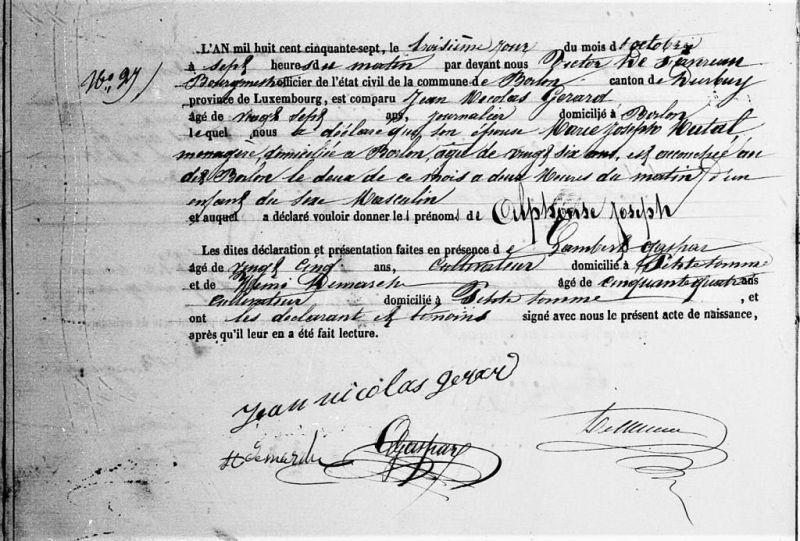 No 27)
L'AN mil huit cent cinquante-sept, le troisième jour du mois d'octobre
à sept heures du matin par devant nous Victor De
Bourgmestre officier de l'état civil de la commune de Borlon canton de Durbuy
province de Luxembourg, est comparu Jean Nicolas Gerard
âgé de vingt sept ans, journalier domicilié à Borlon
lequel nous a déclaré que son épouse Marie Joseph
menagère, domiciliée a Borlon, agée de vingt six ans, est accouchée au
dit Borlon le deux de ce mois a deux heures du matin, d'un
enfant du sexe Masculin
et auquel a déclaré vouloir donner le prénom de Alphonse Joseph
Les dites déclaration et présentation faites en présence de Lambert Gaspar
âgé de vingt cinq ans, Cultivateur domicilié à Petite somme
et de Henri Demarche âgé de cinquante quatre ans
cultivateur domicilié à Petite somme, et
ont les déclarant et témoins signé avec nous le présent acte de naissance,
après qu'il leur en a été fait lecture.
Jean nicolas gerard
H demarche Gaspar